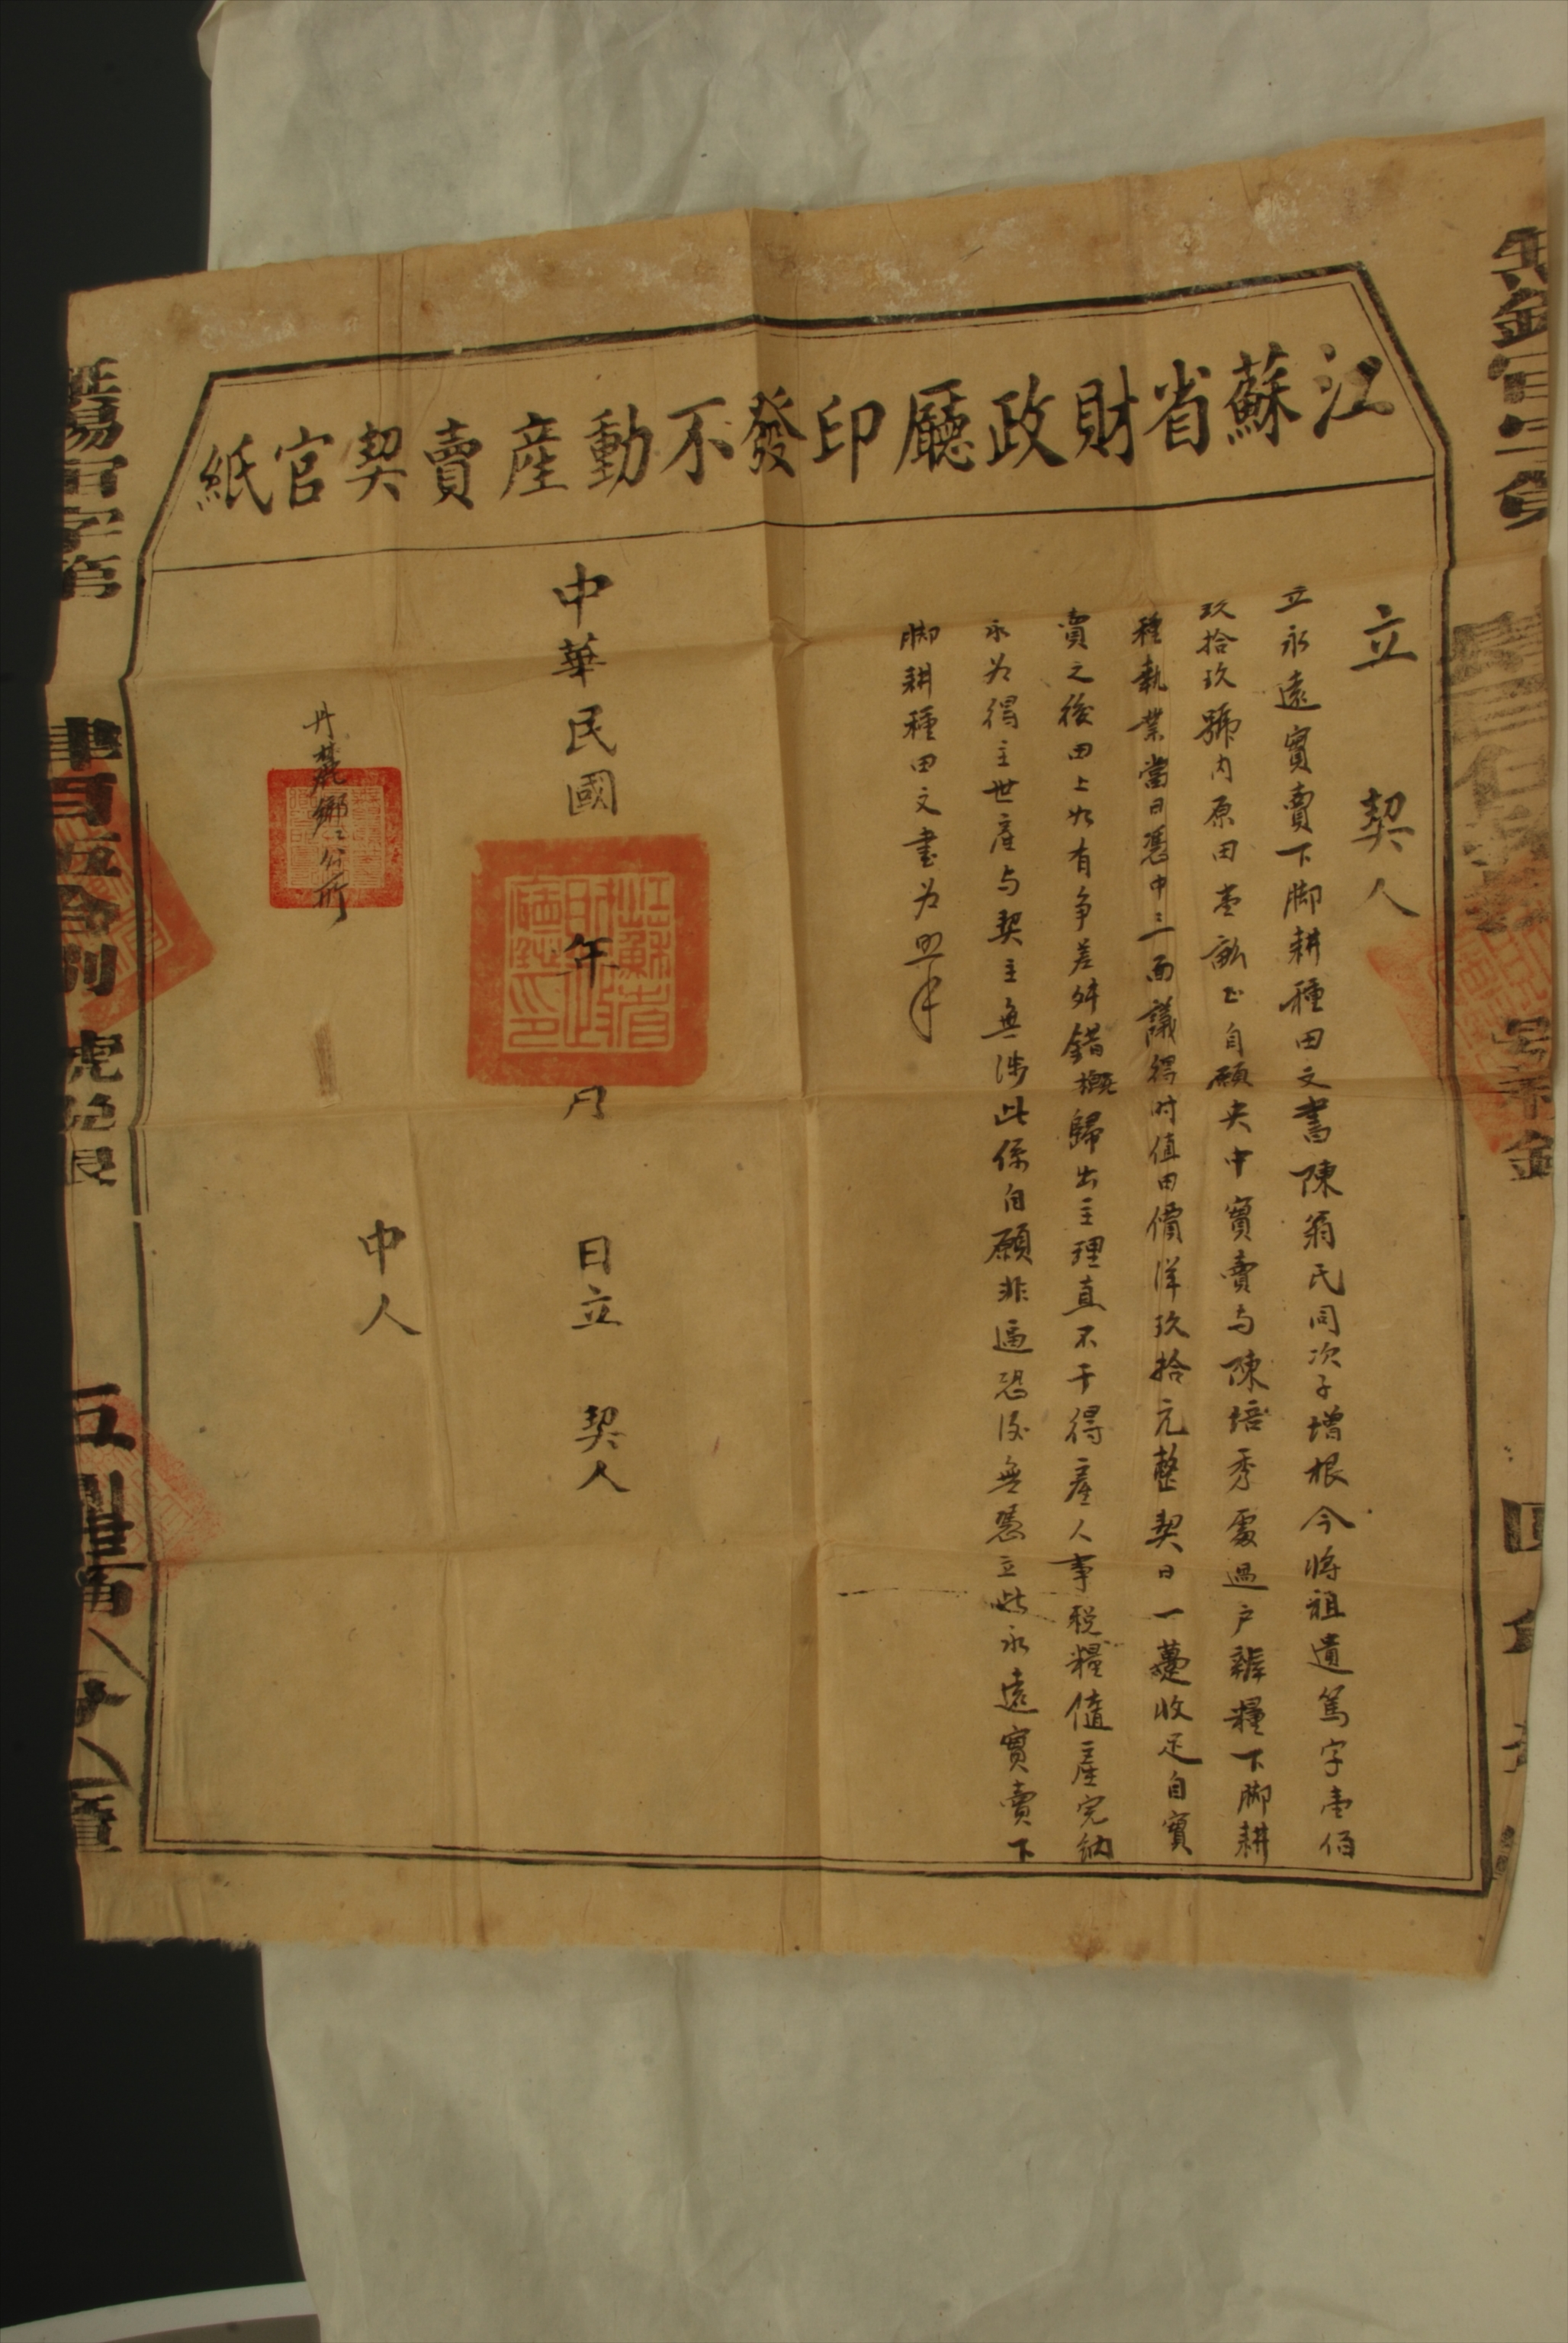 江蘇省財政廳印發不動產賣契官紙
立契人
立永遠實賣下脚耕種田文書陳翁氏同次子增根今將祖遺篤字壹佰
玖拾玖號內原田壹畝正自願央中實賣与陳培秀處過户辦糧下脚耕
種執業當日憑中三面議得时值田價洋玖拾元整契日一蔓收足自實
賣之後田上如有争差舛錯概歸出主理直不干得產人事税糧值產完納
永为得主世產与契主無涉此係自願非逼恐后無憑立此永遠實賣下
脚耕種田文書为照
中華民國年月日立契人
江蘇省財政廳之印
中人
丹麓鄉鄉公所